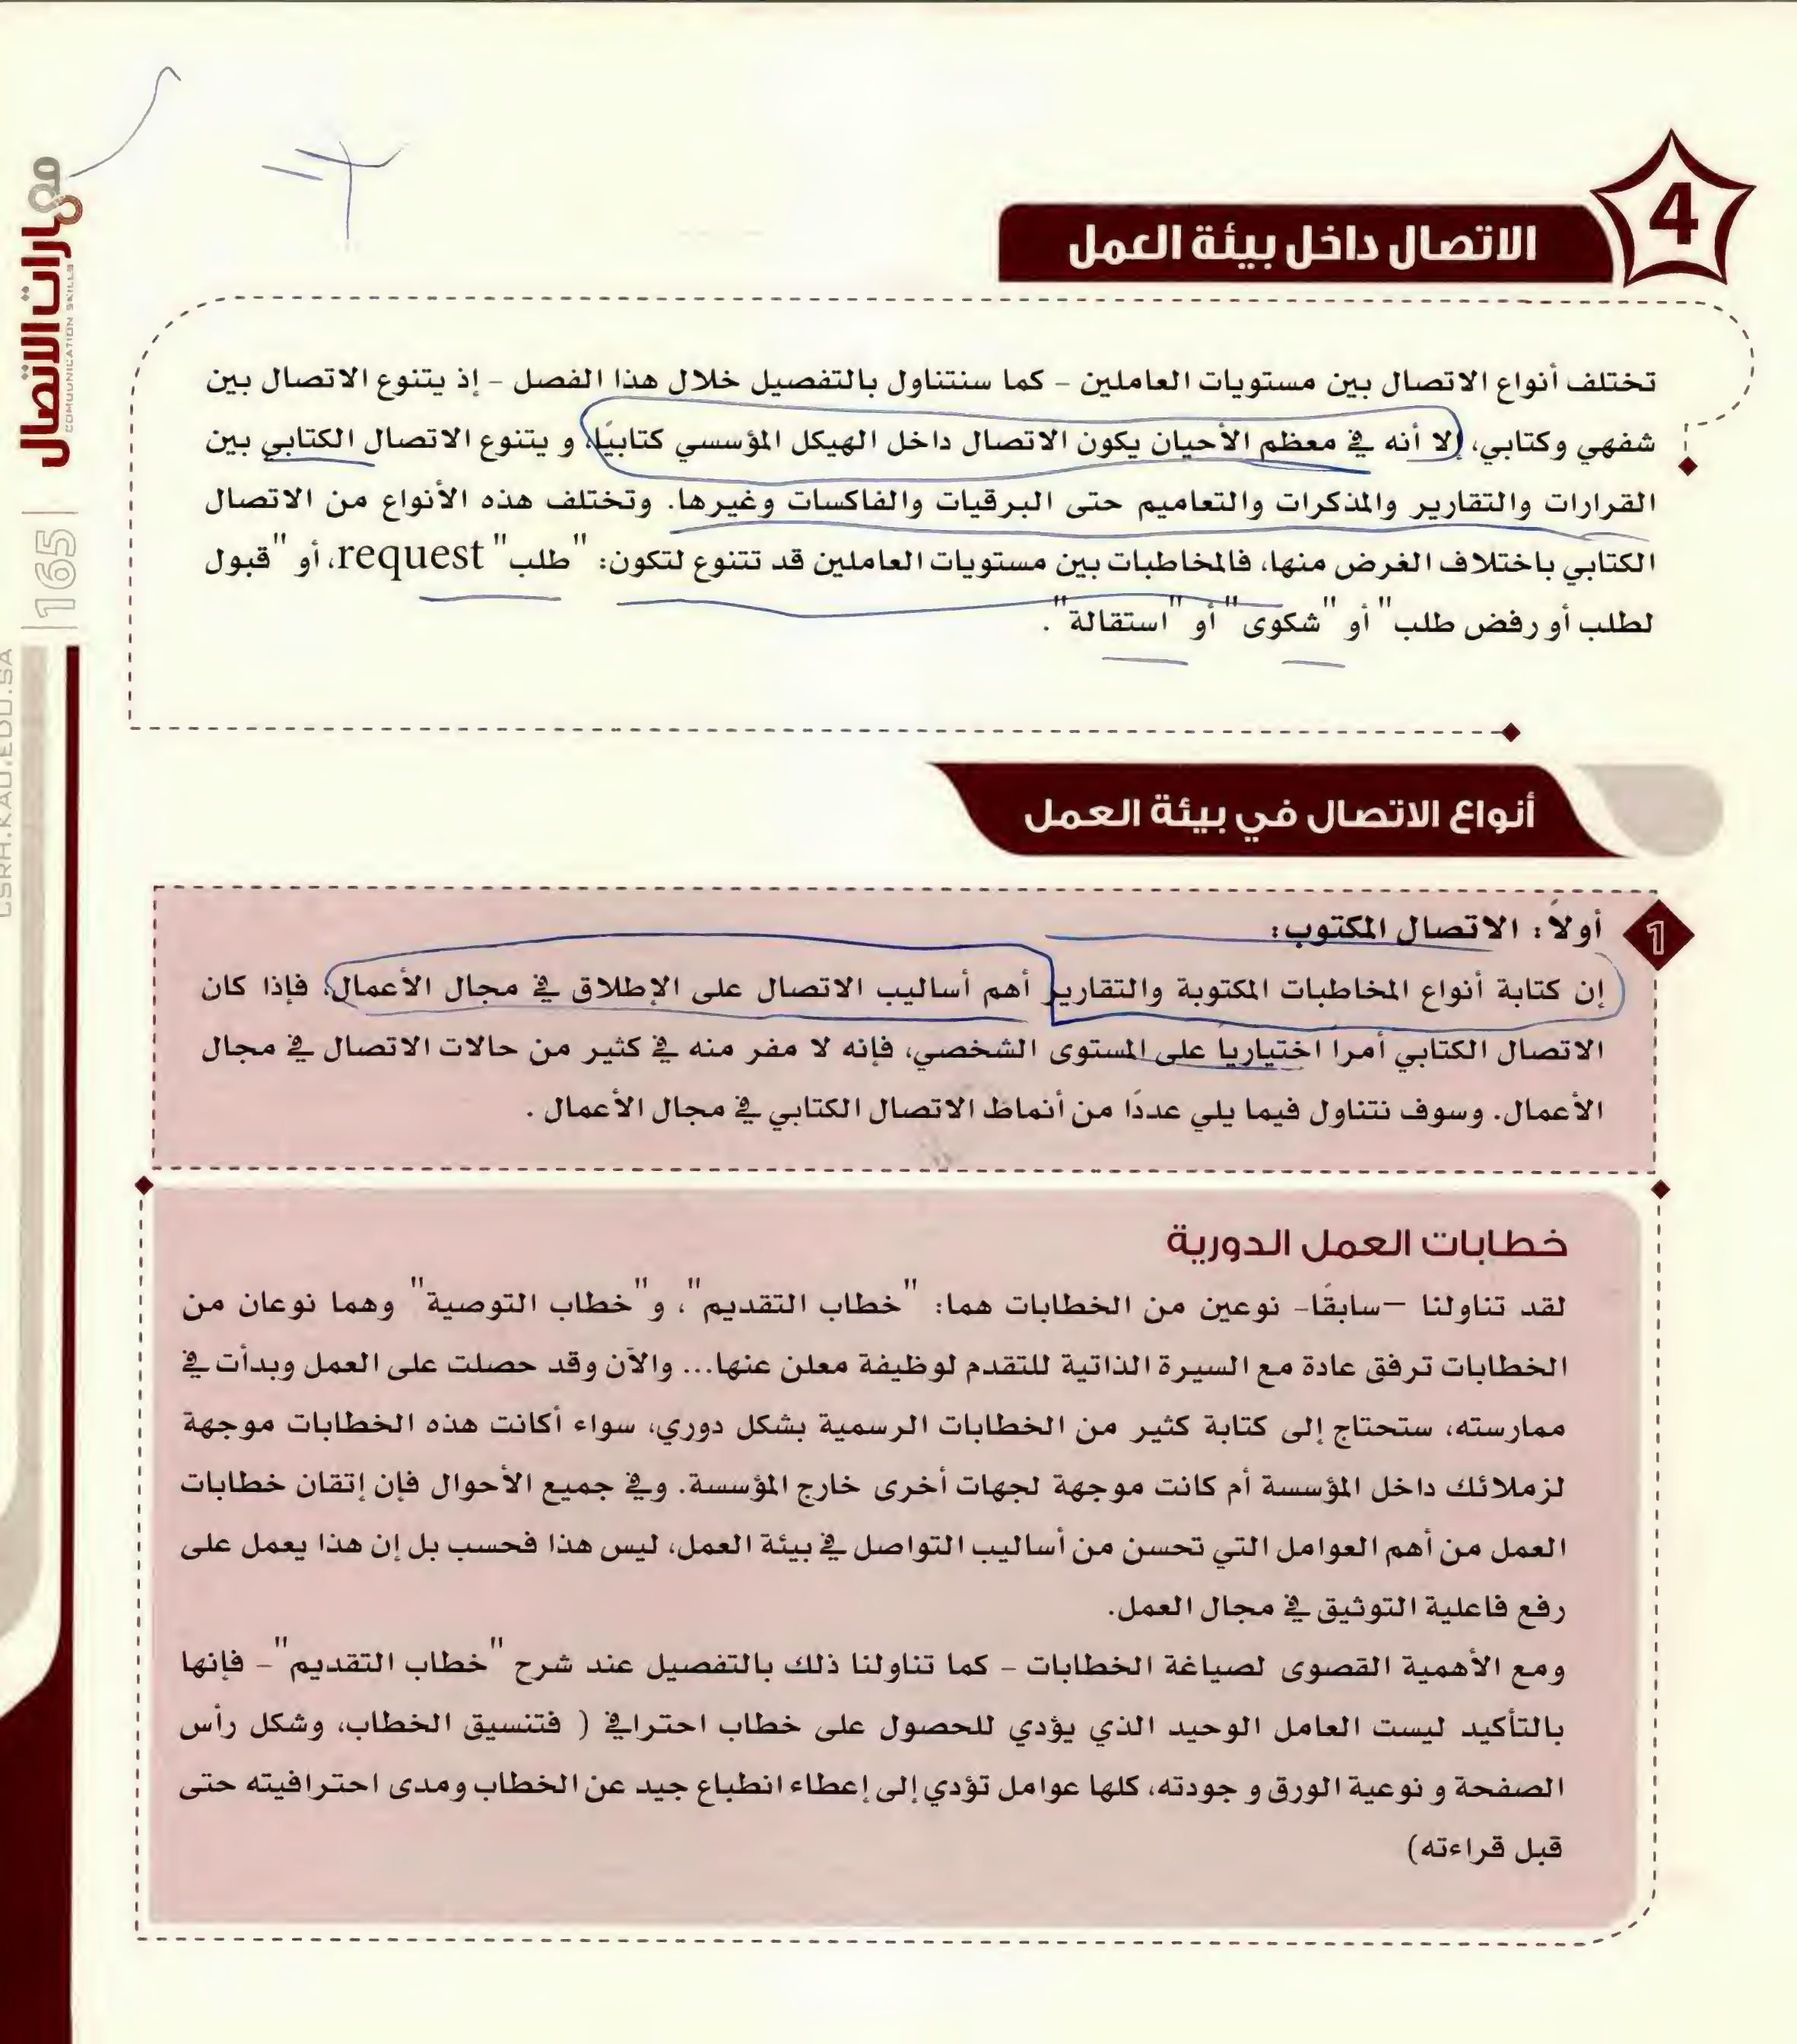 4
الاتصال داخل بيئة العمل
تختلف أنواع الاتصال بين مستويات العاملين – كما سنتناول بالتفصيل خلال هذا الفصل – إذ يتنوع الاتصال بين
شفهي وكتابي، إلا أنه في معظم الأحيان يكون الاتصال داخل الهيكل المؤسسي كتابيًا، و يتنوع الاتصال الكتابي بين
القرارات والتقارير والمذكرات والتعاميم حتى البرقيات والفاكسات وغيرها. وتختلف هذه الأنواع من الاتصال
الكتابي باختلاف الغرض منها، فالمخاطبات بين مستويات العاملين قد تتنوع لتكون: "طلب" request، أو "قبول
لطلب أو رفض طلب" أو "شكوى" أو "استقالة".
أنواع الاتصال في بيئة العمل
1
أولاً: الاتصال المكتوب:
إن كتابة أنواع المخاطبات المكتوبة والتقارير أهم أساليب الاتصال على الإطلاق في مجال الأعمال، فإذا كان
الاتصال الكتابي أمرا اختياريا على المستوى الشخصي، فإنه لا مفر منه في كثير من حالات الاتصال في مجال
الأعمال. وسوف نتناول فيما يلي عددًا من أنماط الاتصال الكتابي في مجال الأعمال .
خطابات العمل الدورية
لقد تناولنا –سابقًا- نوعين من الخطابات هما: "خطاب التقديم"، و"خطاب التوصية" وهما نوعان من
الخطابات ترفق عادة مع السيرة الذاتية للتقدم لوظيفة معلن عنها... والآن وقد حصلت على العمل وبدأت في
ممارسته، ستحتاج إلى كتابة كثير من الخطابات الرسمية بشكل دوري، سواء أكانت هذه الخطابات موجهة
لزملائك داخل المؤسسة أم كانت موجهة لجهات أخرى خارج المؤسسة. وفي جميع الأحوال فإن إتقان خطابات
العمل من أهم العوامل التي تحسن من أساليب التواصل في بيئة العمل، ليس هذا فحسب بل إن هذا يعمل على
رفع فاعلية التوثيق في مجال العمل.
ومع الأهمية القصوى لصياغة الخطابات – كما تناولنا ذلك بالتفصيل عند شرح "خطاب التقديم" – فإنها
بالتأكيد ليست العامل الوحيد الذي يؤدي للحصول على خطاب احترافي ( فتنسيق الخطاب، وشكل رأس
الصفحة و نوعية الورق و جودته، كلها عوامل تؤدي إلى إعطاء انطباع جيد عن الخطاب ومدى احترافيته حتى
قبل قراءته)
مهارات الاتصال
COMUNICATION SKILLS
|165|
CSRH.KAU.EDU.SA